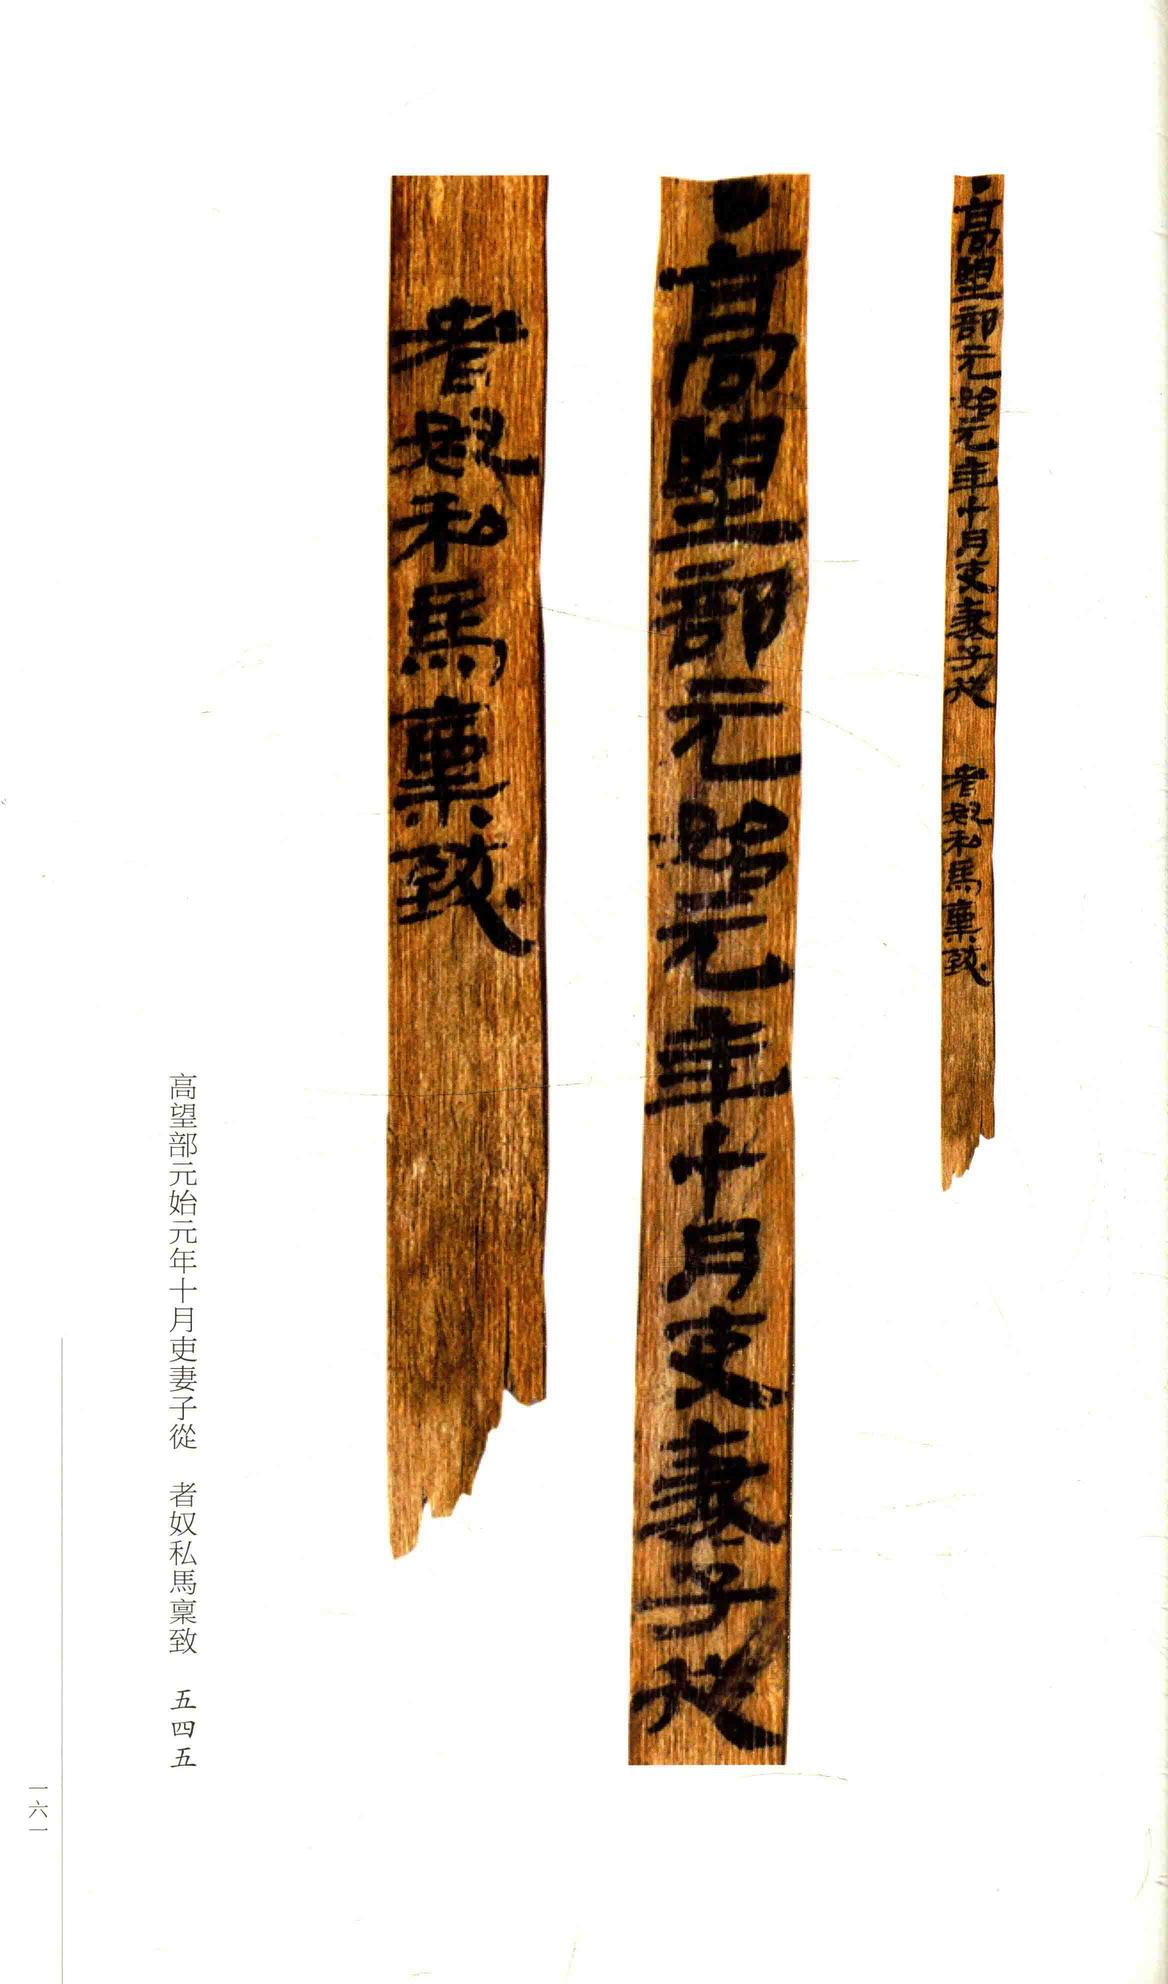 ・高望部元始元年十月吏妻子從　者奴私馬稟致
・高望部元始元年十月吏妻子從
者奴私馬稟致
高望部元始元年十月吏妻子從　者奴私馬稟致　五四五
一六一